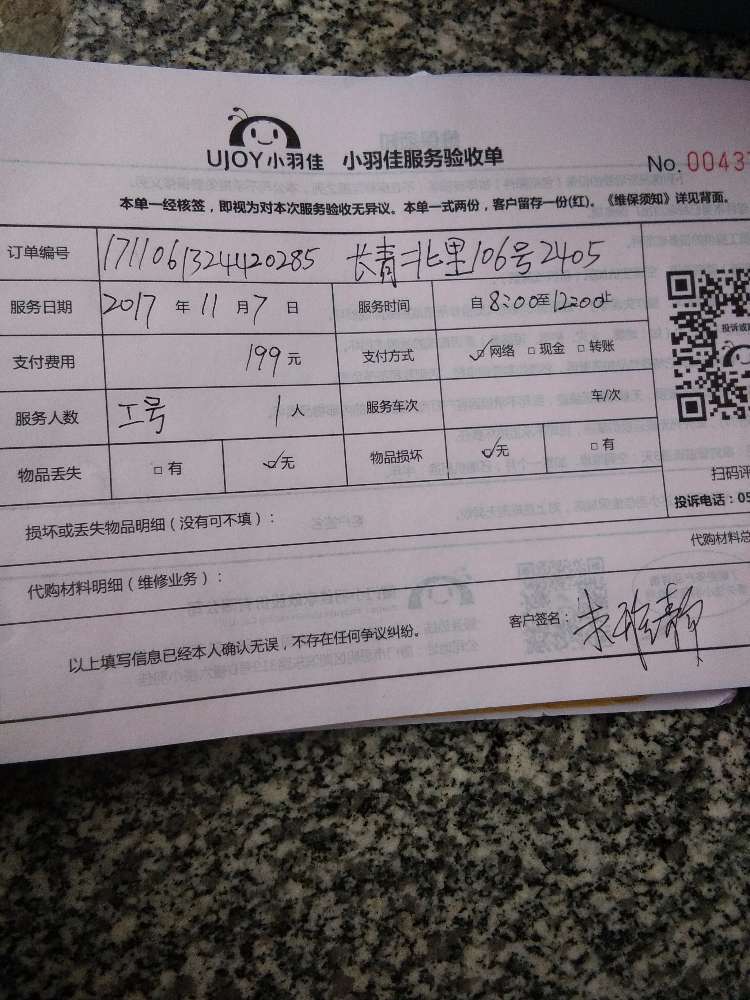 UJOY小羽佳 小羽佳服务验收单 No.0043
本单一经核签，即视为对本次服务验收无异议。本单一式两份，客户留存一份(红)。《维保须知》详见背面。
订单编号 1711061324420285 长青北里106号2405
服务日期 2017 年 11 月 7 日 服务时间 自 8:00至12:00止
支付费用 199元 支付方式 ☑网络 □现金 □转账
服务人数 工号 1人 服务车次 车/次
物品丢失 □有 ☑无 物品损坏 ☑无 □有
扫码评
投诉电话：05
损坏或丢失物品明细（没有可不填）：
代购材料总
代购材料明细（维修业务）：
客户签名：
以上填写信息已经本人确认无误，不存在任何争议纠纷。